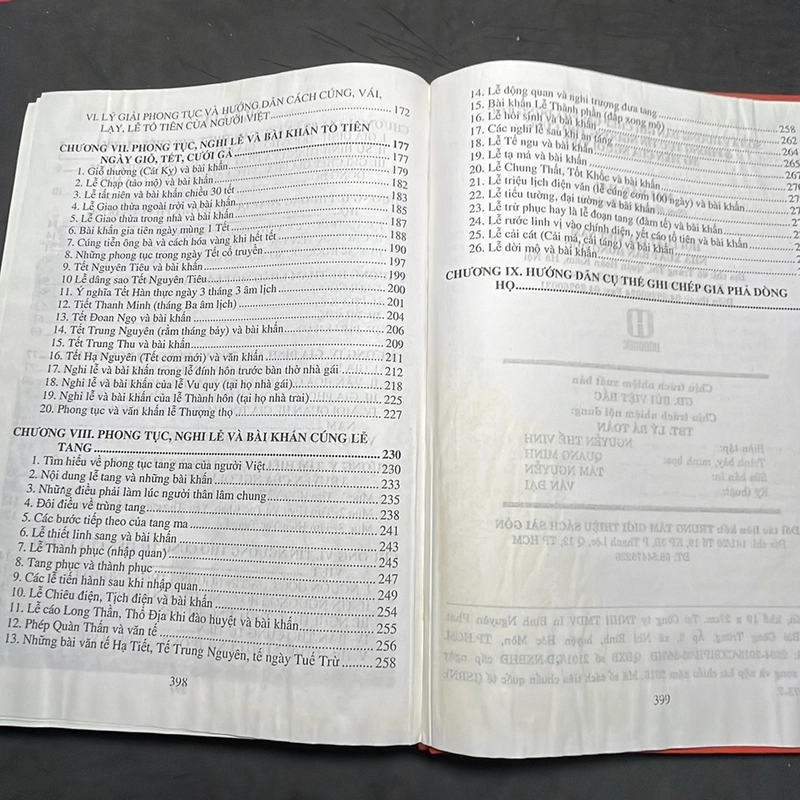 VI. LÝ GIẢI PHONG TỤC VÀ HƯỚNG DẪN CÁCH CÚNG, VÁI,
LẠY, LỄ TỔ TIÊN CỦA NGƯỜI VIỆT 172
CHƯƠNG VII. PHONG TỤC, NGHI LỄ VÀ BÀI KHẤN TỔ TIÊN 177
NGÀY GIỖ, TẾT, CƯỚI GẢ 177
1. Giỗ thường (Cát Kỵ) và bài khấn 179
2. Lễ Chạp (tảo mộ) và bài khấn 182
3. Lễ tất niên và bài khấn chiều 30 tết 183
4. Lễ Giao thừa ngoài trời và bài khấn 185
5. Lễ Giao thừa trong nhà và bài khấn 187
6. Bài khấn gia tiên ngày mùng 1 Tết 188
7. Cúng tiễn ông bà và cách hóa vàng khi hết tết 190
8. Những phong tục trong ngày Tết cổ truyền 197
9. Tết Nguyên Tiêu và bài khấn 199
10. Lễ dâng sao Tết Nguyên Tiêu 200
11. Ý nghĩa Tết Hàn thực ngày 3 tháng 3 âm lịch 201
12. Tiết Thanh Minh (tháng Ba âm lịch) 204
13. Tết Đoan Ngọ và bài khấn 206
14. Tết Trung Nguyên (rằm tháng bảy) và bài khấn 209
15. Tết Trung Thu và bài khấn 211
16. Tết Hạ Nguyên (Tết cơm mới) và văn khấn 212
17. Nghi lễ và bài khấn trong lễ đính hôn trước bàn thờ nhà gái 218
18. Nghi lễ và bài khấn của lễ Vu quy (tại họ nhà gái) 225
19. Nghi lễ và bài khấn của lễ Thành hôn (tại họ nhà trai) 227
20. Phong tục và văn khấn lễ Thượng thọ
CHƯƠNG VIII. PHONG TỤC, NGHI LỄ VÀ BÀI KHẤN CÚNG LỄ
TANG 230
1. Tìm hiểu về phong tục tang ma của người Việt 230
2. Nội dung lễ tang và những bài khấn 233
3. Những điều phải làm lúc người thân lâm chung 235
4. Đôi điều về trùng tang 238
5. Các bước tiếp theo của tang ma 241
6. Lễ thiết linh sang và bài khấn 243
7. Lễ Thành phục (nhập quan) 245
8. Tang phục và thành phục 247
9. Các lễ tiến hành sau khi nhập quan 249
10. Lễ Chiêu điện, Tịch điện và bài khấn 254
11. Lễ cáo Long Thần, Thổ Địa khi đào huyệt và bài khấn 255
12. Phép Quàn Thấn và văn tế 256
13. Những bài văn tế Hạ Tiết, Tế Trung Nguyên, tế ngày Tuế Trừ 258
398
14. Lễ động quan và nghi trượng đưa tang
15. Bài khấn Lễ Thành phần (đắp xong mộ) 258
16. Lễ hồi sinh và bài khấn 262
17. Các nghi lễ sau khi an táng 264
18. Lễ Tế ngu và bài khấn 265
19. Lễ tạ mả và bài khấn
20. Lễ Chung Thất, Tốt Khốc và bài khấn
21. Lễ triệu lịch điện văn (lễ cúng cơm 100 ngày) và bài khấn
22. Lễ tiểu tường, đại tường và bài khấn
23. Lễ trừ phục hay là lễ đoạn tang (đàm tế) và bài khấn
24. Lễ rước linh vị vào chính điện, yết cáo tổ tiên và bài khấn
25. Lễ cải cát (Cải mả, cải táng) và bài khấn
26. Lễ dời mộ và bài khấn
CHƯƠNG IX. HƯỚNG DẪN CỤ THỂ GHI CHÉP GIA PHẢ DÒNG
HỌ
399